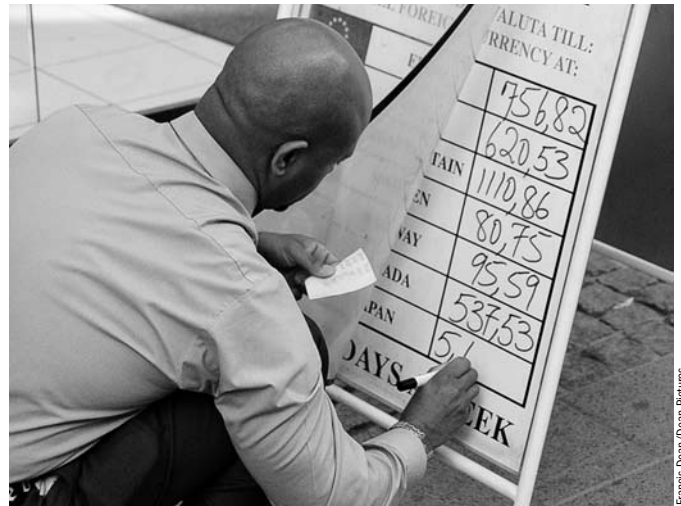 FOREIC
ALUTA TILL:
RRENCY AT:
756,82
620,53
TAIN 1110,86
EN 80,75
WAY 95,59
ADA 537,53
PAN 5
DAYS EEK
Francis Dean/Dean Pictures